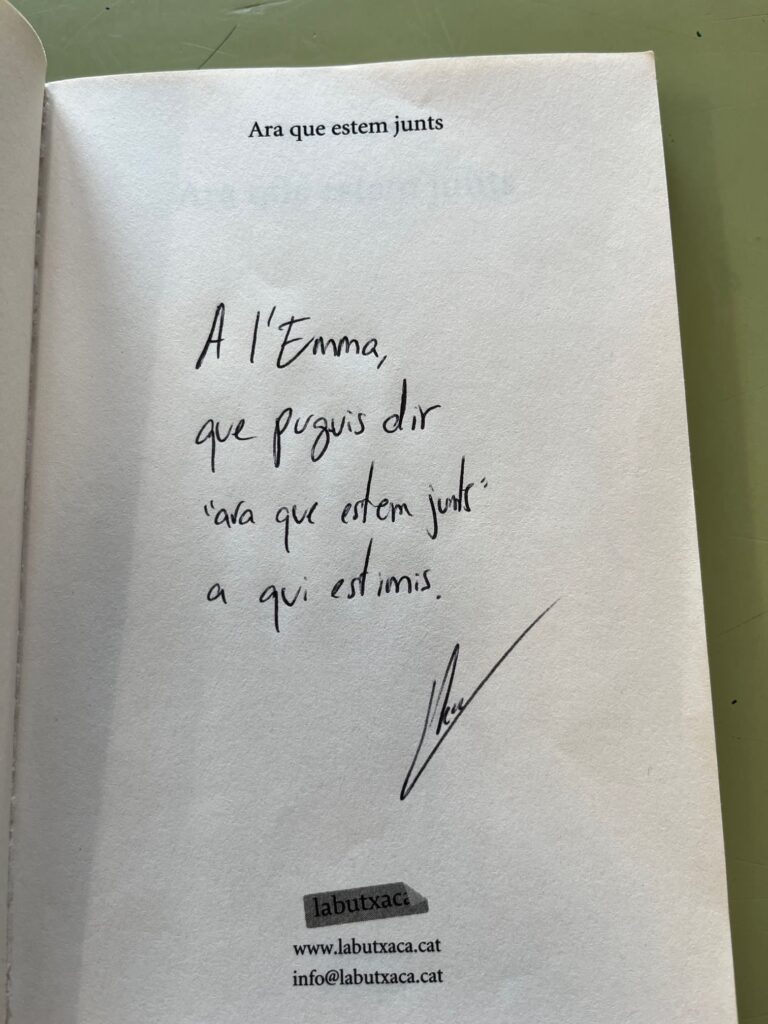 Ara que estem junts
A l'Emma,
que puguis dir
"ara que estem junts"
a qui estimis.
labutxaca
www.labutxaca.cat
info@labutxaca.cat